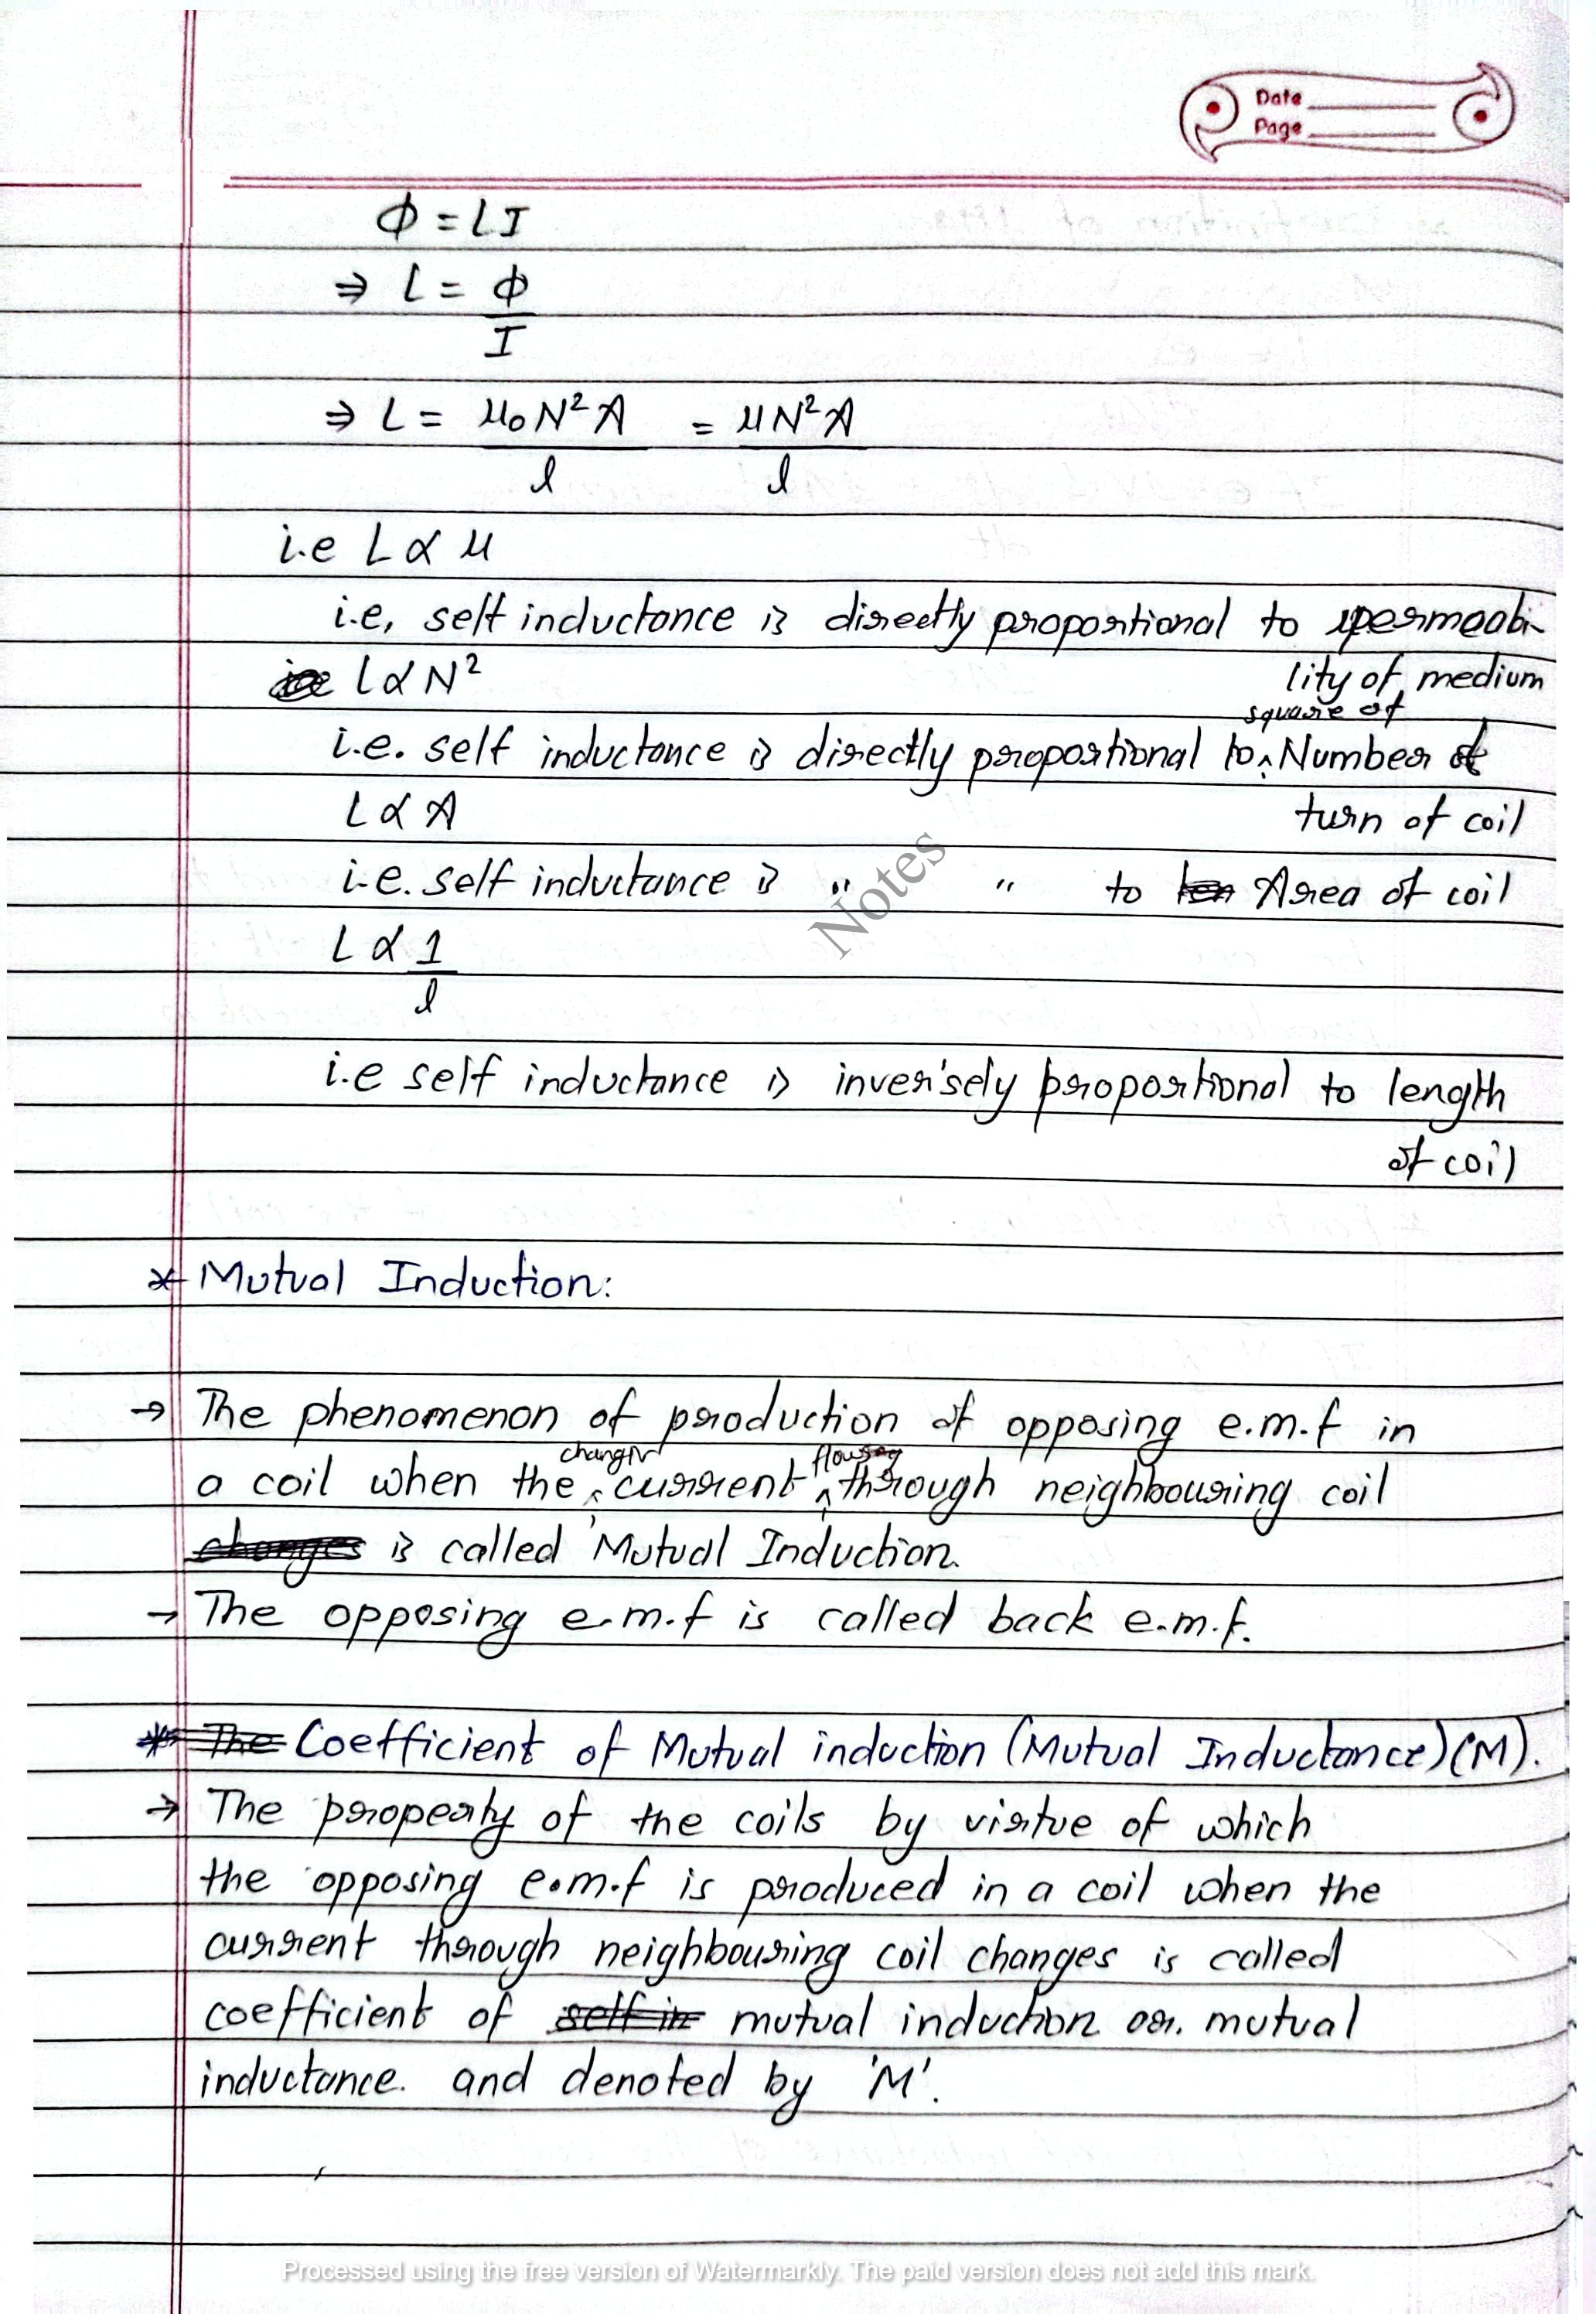 Date
Page
Φ = LI
⇒ L = Φ/I
⇒ L = μ₀N²A/l = μN²A/l
i.e L ∝ μ
i.e, self inductance is directly proportional to permeabi-
lity of medium
L ∝ N²
i.e. self inductance is directly proportional to square of Number of
turn of coil
L ∝ A
i.e. self inductance is " " to Area of coil
L ∝ 1/l
i.e self inductance is inversely proportional to length
of coil
* Mutual Induction:
→ The phenomenon of production of opposing e.m.f in
a coil when the changing current flowing through neighbouring coil
changes is called Mutual Induction.
→ The opposing e.m.f is called back e.m.f.
* The Coefficient of Mutual induction (Mutual Inductance) (M).
→ The property of the coils by virtue of which
the opposing e.m.f is produced in a coil when the
current through neighbouring coil changes is called
coefficient of self in mutual induction or. mutual
inductance. and denoted by 'M'.
Notes
Processed using the free version of Watermarkly. The paid version does not add this mark.